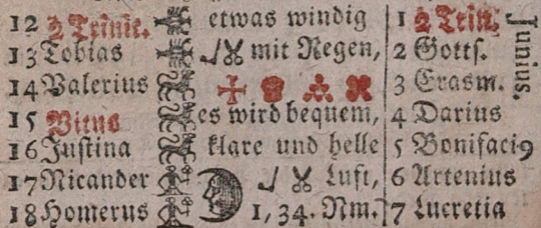 12 2 Trinit. etwas windig 1 2 Trin.
13 Tobias mit Regen, 2 Gottſ.
14 Valerius 3 Erasm.
15 Vitus es wird bequem, 4 Darius
16 Juſtina klare und helle 5 Bonifaci9
17 Nicander Luft, 6 Artenius
18 Homerus 1, 34. Nm. 7 Lucretia
Junius.